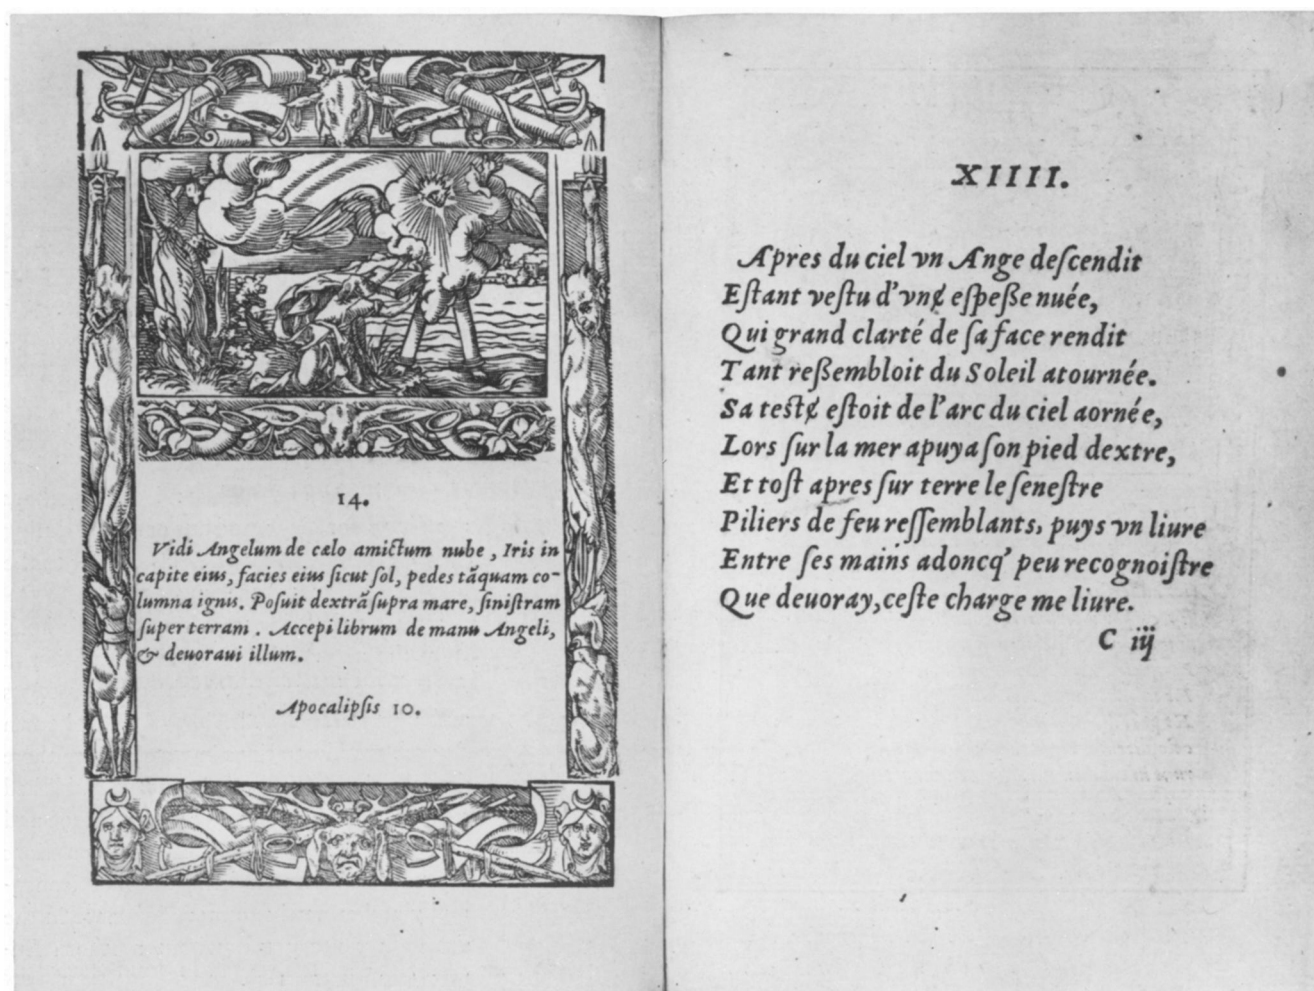 14.
Vidi Angelum de cælo amictum nube, Iris in
capite eius, facies eius ſicut ſol, pedes tãquam co-
lumna ignis. Poſuit dextrã ſupra mare, ſiniſtram
ſuper terram. Accepi librum de manu Angeli,
& deuoraui illum.
Apocalipſis 10.
XIIII.
Apres du ciel vn Ange deſcendit
Eſtant veſtu d'vnɇ eſpeße nuée,
Qui grand clarté de ſa face rendit
Tant reßembloit du Soleil atournée.
Sa teſtɇ eſtoit de l'arc du ciel aornée,
Lors ſur la mer apuya ſon pied dextre,
Et toſt apres ſur terre le ſeneſtre
Piliers de feu reſſemblants, puys vn liure
Entre ſes mains adoncq' peu recognoiſtre
Que deuoray, ceſte charge me liure.
C iij